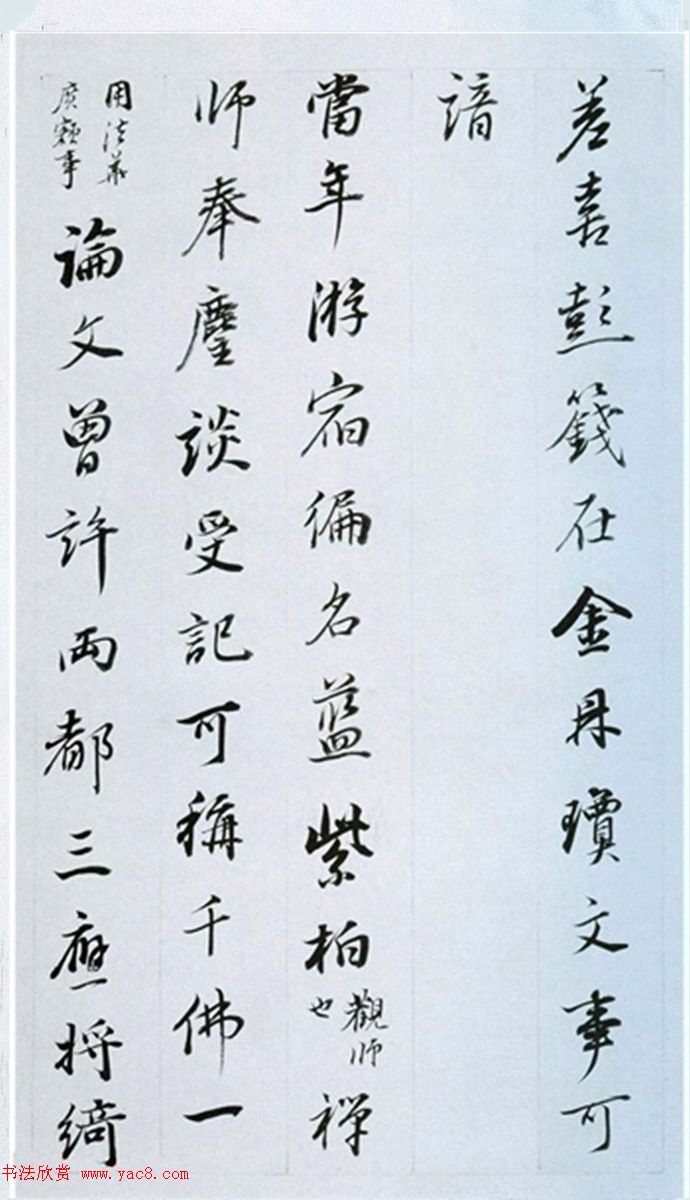 差喜彭籛在金丹瓊文事可
諳
當年游宿徧名藍紫柏觀師也禪
師奉麈談受記可稱千佛一
用法華
廣額事
論文曾許兩都三應將綺
书法欣赏 www.yac8.com